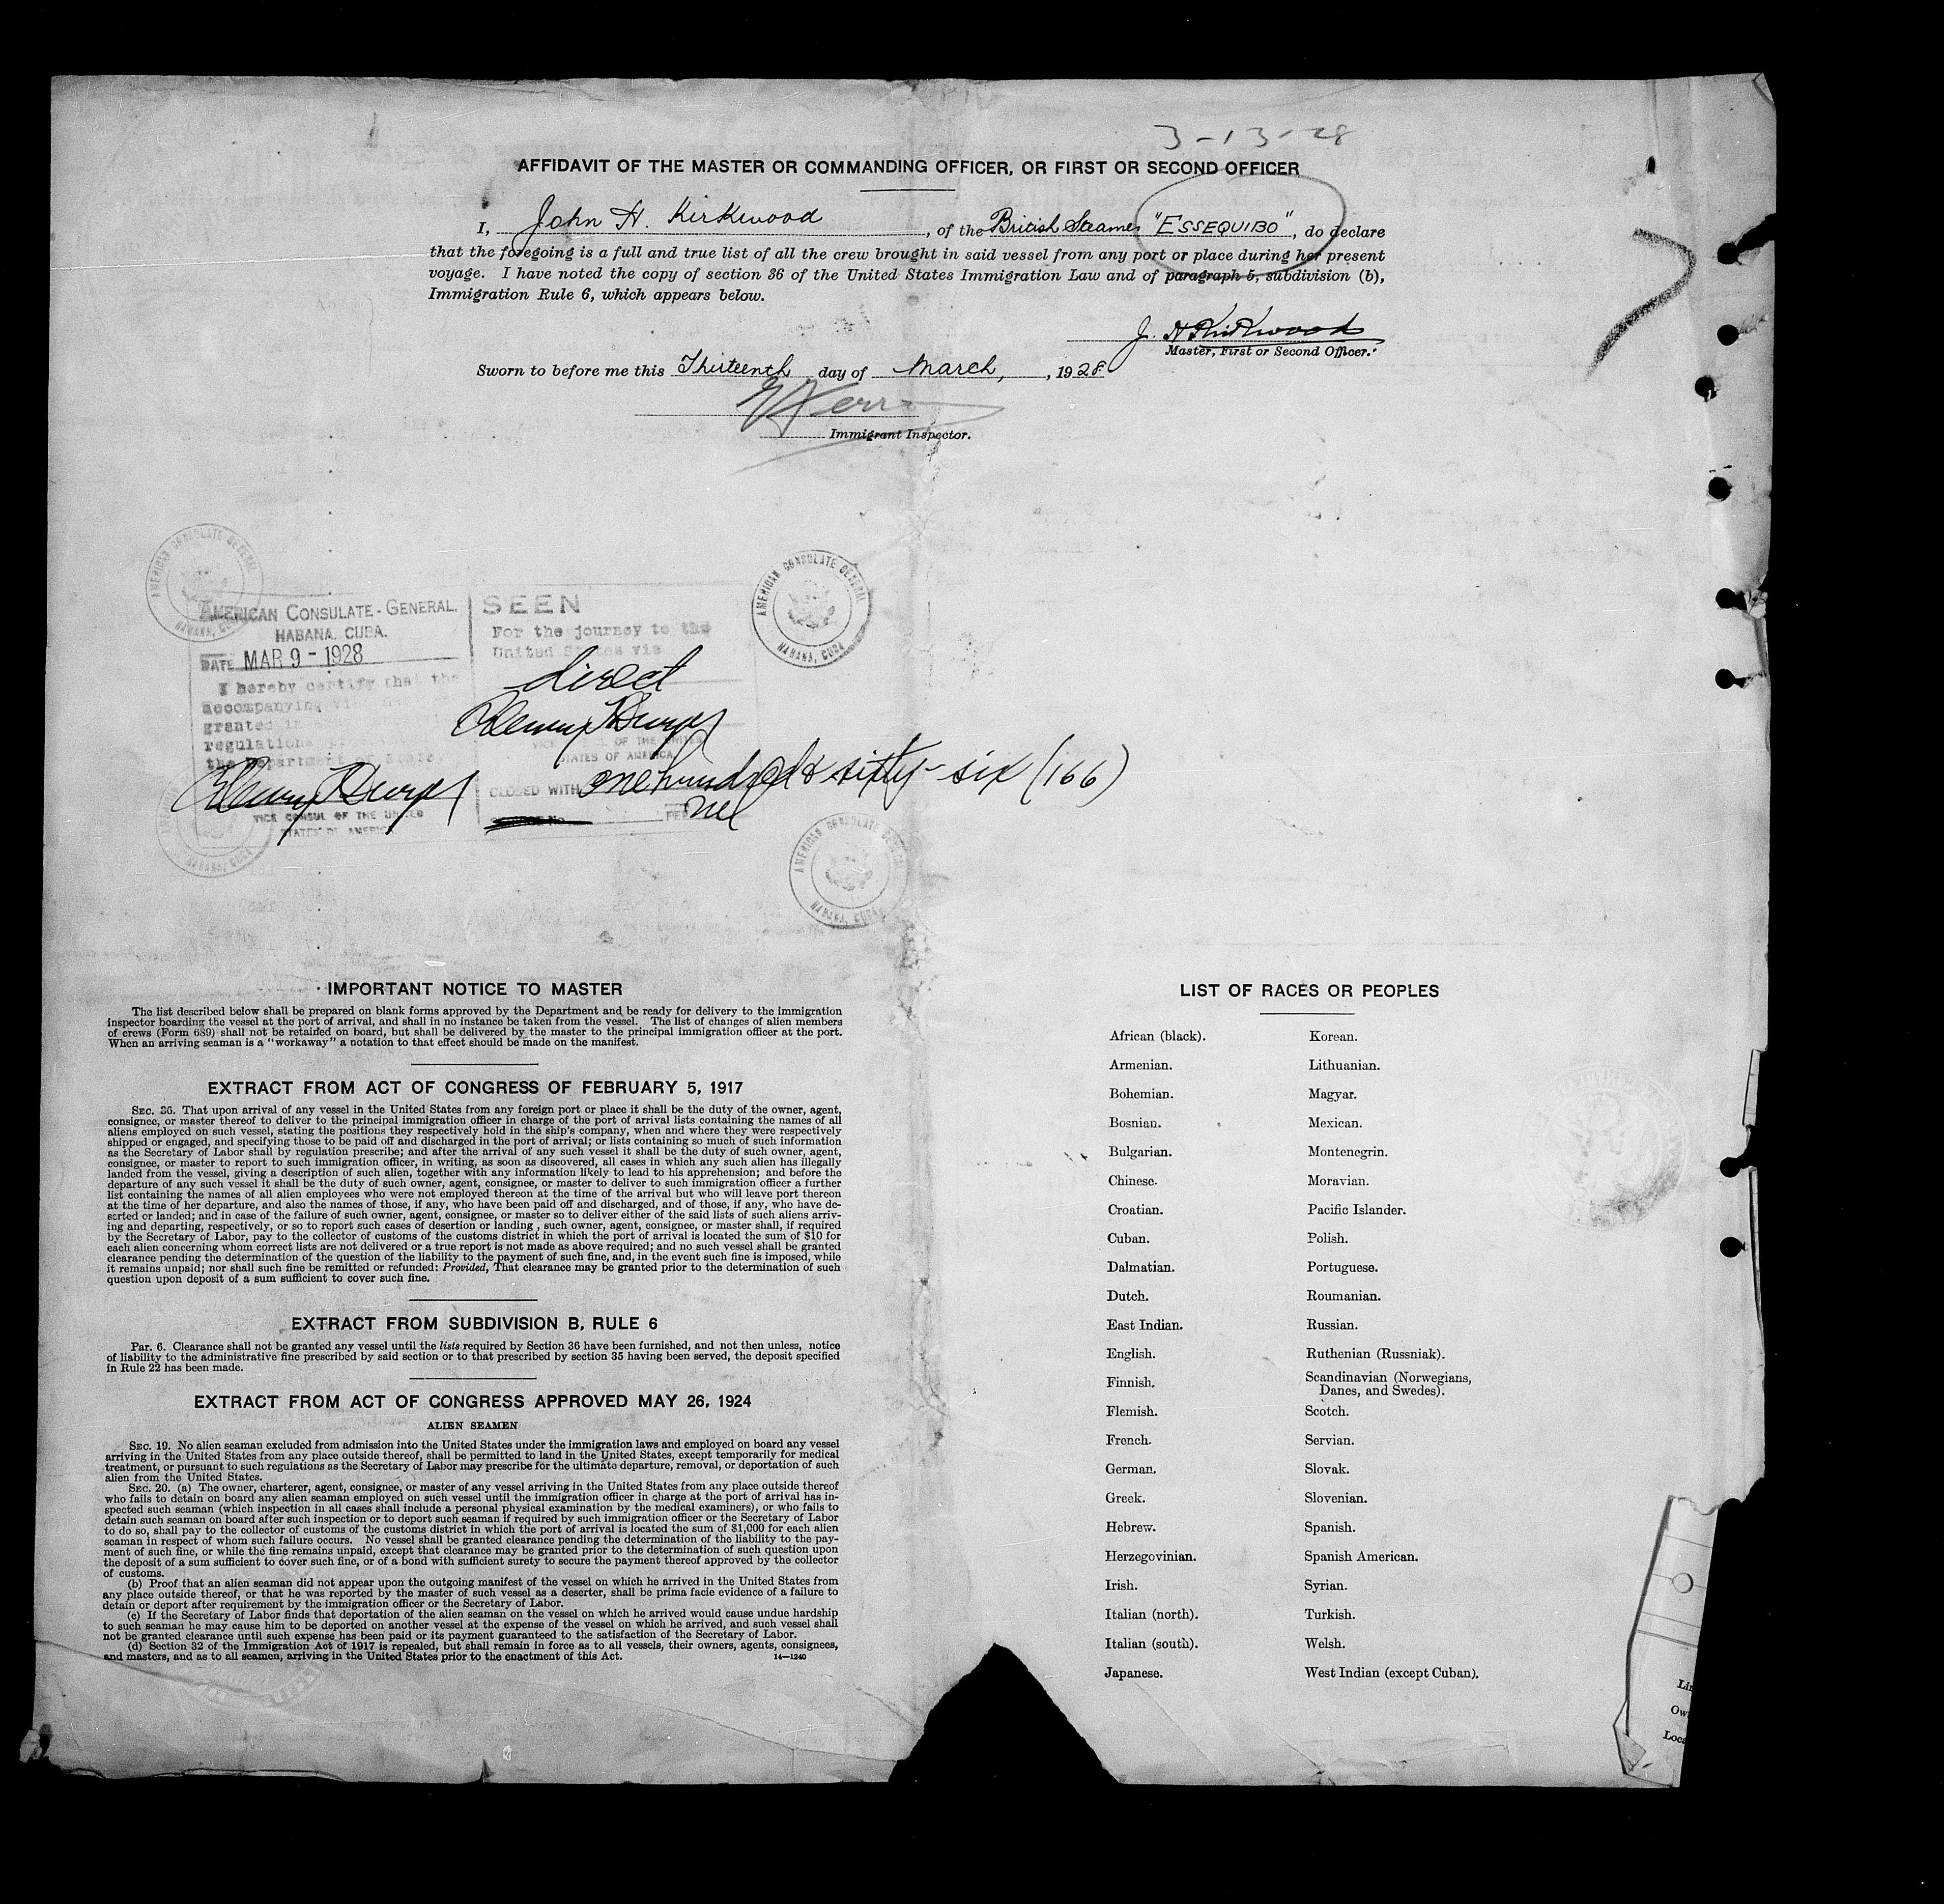 3-13-28
AFFIDAVIT OF THE MASTER OR COMMANDING OFFICER, OR FIRST OR SECOND OFFICER
I, John H. Kirkwood, of the British Steamer "ESSEQUIBO", do declare
that the foregoing is a full and true list of all the crew brought in said vessel from any port or place during her present
voyage. I have noted the copy of section 36 of the United States Immigration Law and of paragraph 5, subdivision (b),
Immigration Rule 6, which appears below.
J. H Kirkwood
Master, First or Second Officer.
Sworn to before me this Thirteenth day of March, , 1928
Immigrant Inspector.
AMERICAN CONSULATE GENERAL
HABANA, CUBA
AMERICAN CONSULATE-GENERAL.
HABANA, CUBA.
DATE MAR 9 - 1928
I hereby certify that the
accompanying
granted in
regulations
the Department
VICE CONSUL OF THE UNITED
STATES OF AMERICA
SEEN
For the journey to the
United States via
direct
VICE CONSUL OF THE UNITED
STATES OF AMERICA
CLOSED WITH one hundred & sixty-six (166)
AMERICAN CONSULATE GENERAL
HABANA, CUBA
AMERICAN CONSULATE GENERAL
HABANA, CUBA
HABANA, CUBA
IMPORTANT NOTICE TO MASTER
The list described below shall be prepared on blank forms approved by the Department and be ready for delivery to the immigration
inspector boarding the vessel at the port of arrival, and shall in no instance be taken from the vessel. The list of changes of alien members
of crews (Form 689) shall not be retained on board, but shall be delivered by the master to the principal immigration officer at the port.
When an arriving seaman is a "workaway" a notation to that effect should be made on the manifest.
EXTRACT FROM ACT OF CONGRESS OF FEBRUARY 5, 1917
SEC. 36. That upon arrival of any vessel in the United States from any foreign port or place it shall be the duty of the owner, agent,
consignee, or master thereof to deliver to the principal immigration officer in charge of the port of arrival lists containing the names of all
aliens employed on such vessel, stating the positions they respectively hold in the ship's company, when and where they were respectively
shipped or engaged, and specifying those to be paid off and discharged in the port of arrival; or lists containing so much of such information
as the Secretary of Labor shall by regulation prescribe; and after the arrival of any such vessel it shall be the duty of such owner, agent,
consignee, or master to report to such immigration officer, in writing, as soon as discovered, all cases in which any such alien has illegally
landed from the vessel, giving a description of such alien, together with any information likely to lead to his apprehension; and before the
departure of any such vessel it shall be the duty of such owner, agent, consignee, or master to deliver to such immigration officer a further
list containing the names of all alien employees who were not employed thereon at the time of the arrival but who will leave port thereon
at the time of her departure, and also the names of those, if any, who have been paid off and discharged, and of those, if any, who have de-
serted or landed; and in case of the failure of such owner, agent, consignee, or master so to deliver either of the said lists of such aliens arriv-
ing and departing, respectively, or so to report such cases of desertion or landing , such owner, agent, consignee, or master shall, if required
by the Secretary of Labor, pay to the collector of customs of the customs district in which the port of arrival is located the sum of $10 for
each alien concerning whom correct lists are not delivered or a true report is not made as above required; and no such vessel shall be granted
clearance pending the determination of the question of the liability to the payment of such fine, and, in the event such fine is imposed, while
it remains unpaid; nor shall such fine be remitted or refunded: Provided, That clearance may be granted prior to the determination of such
question upon deposit of a sum sufficient to cover such fine.
EXTRACT FROM SUBDIVISION B, RULE 6
Par. 6. Clearance shall not be granted any vessel until the lists required by Section 36 have been furnished, and not then unless, notice
of liability to the administrative fine prescribed by said section or to that prescribed by section 35 having been served, the deposit specified
in Rule 22 has been made.
EXTRACT FROM ACT OF CONGRESS APPROVED MAY 26, 1924
ALIEN SEAMEN
SEC. 19. No alien seaman excluded from admission into the United States under the immigration laws and employed on board any vessel
arriving in the United States from any place outside thereof, shall be permitted to land in the United States, except temporarily for medical
treatment, or pursuant to such regulations as the Secretary of Labor may prescribe for the ultimate departure, removal, or deportation of such
alien from the United States.
SEC. 20. (a) The owner, charterer, agent, consignee, or master of any vessel arriving in the United States from any place outside thereof
who fails to detain on board any alien seaman employed on such vessel until the immigration officer in charge at the port of arrival has in-
spected such seaman (which inspection in all cases shall include a personal physical examination by the medical examiners), or who fails to
detain such seaman on board after such inspection or to deport such seaman if required by such immigration officer or the Secretary of Labor
to do so, shall pay to the collector of customs of the customs district in which the port of arrival is located the sum of $1,000 for each alien
seaman in respect of whom such failure occurs. No vessel shall be granted clearance pending the determination of the liability to the pay-
ment of such fine, or while the fine remains unpaid, except that clearance may be granted prior to the determination of such question upon
the deposit of a sum sufficient to cover such fine, or of a bond with sufficient surety to secure the payment thereof approved by the collector
of customs.
(b) Proof that an alien seaman did not appear upon the outgoing manifest of the vessel on which he arrived in the United States from
any place outside thereof, or that he was reported by the master of such vessel as a deserter, shall be prima facie evidence of a failure to
detain or deport after requirement by the immigration officer or the Secretary of Labor.
(c) If the Secretary of Labor finds that deportation of the alien seaman on the vessel on which he arrived would cause undue hardship
to such seaman he may cause him to be deported on another vessel at the expense of the vessel on which he arrived, and such vessel shall
not be granted clearance until such expense has been paid or its payment guaranteed to the satisfaction of the Secretary of Labor.
(d) Section 32 of the Immigration Act of 1917 is repealed, but shall remain in force as to all vessels, their owners, agents, consignees,
and masters, and as to all seamen, arriving in the United States prior to the enactment of this Act.
14—1240
LIST OF RACES OR PEOPLES
African (black). Korean.
Armenian. Lithuanian.
Bohemian. Magyar.
Bosnian. Mexican.
Bulgarian. Montenegrin.
Chinese. Moravian.
Croatian. Pacific Islander.
Cuban. Polish.
Dalmatian. Portuguese.
Dutch. Roumanian.
East Indian. Russian.
English. Ruthenian (Russniak).
Finnish. Scandinavian (Norwegians,
Danes, and Swedes).
Flemish. Scotch.
French. Servian.
German. Slovak.
Greek. Slovenian.
Hebrew. Spanish.
Herzegovinian. Spanish American.
Irish. Syrian.
Italian (north). Turkish.
Italian (south). Welsh.
Japanese. West Indian (except Cuban).